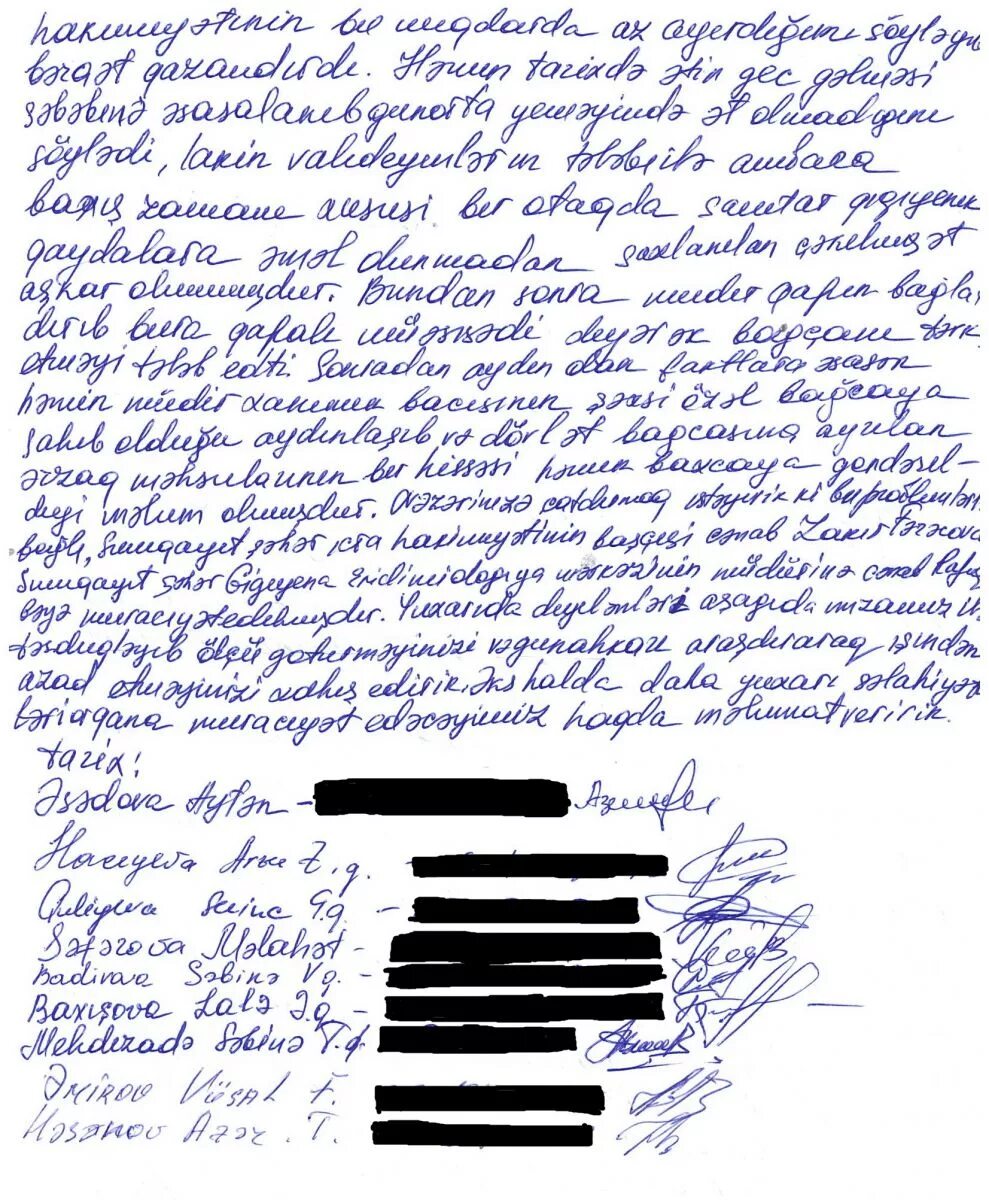 hakimiyyətinin bu miqdarda az ayırdığını söyləyib
bəraət qazandırdı. Həmin tarixdə ətin gec gəlməsi
səbəbinə əsaslanıb günorta yeməyində ət olmadığını
söylədi, lakin valideyinlərin tələbi ilə anbara
baxış zamanı xususi bir otaqda sanitar gigiyenik
qaydalara əməl olunmadan saxlanılan çəkilmiş ət
aşkar olunmuşdur. Bundan sonra müdir qapını bağla
dırıb bura qapalı müəssisədi deyərək bağçanı tərk
etməyi tələb edti. Sonradan aydın olan faktlara əsasən
həmin müdir xanımın bacısının şəxsi özəl bağçaya
sahib olduğu aydınlaşıb və dövlət bağcasına ayrılan
ərzaq məhsularının bir hissəsi həmin baxcaya göndəsəl-
diyi məlum olmuşdur. Nəzərinizə çatdırmaq istəyirik ki bu problemlərlə
bağlı, Sumqayıt şəhər icra hakimiyyətinin başçısı cənab Zakir Fərəcova
Sumqayıt şəhər Gigiyena Epidimiologiya mərkəzinin müdürinə cənab
bəyə muraciyət edilmişdir. Yuxarıda deyilənləri aşagıda imzamız ilə
təsduqləyib ölçü götürməyinizi və gunahkarı araşdıraraq işindən
azad etməyinizi xahiş edirik. Əks halda daha yuxarı səlahiyyət
ləri orqana muraciyət edəcəyimiz haqda məlumat veririk.
tarix:
Əsədova Aytən -
Hacıyeva Arzu Z. q.
Quliyeva G.q. -
Səfərova Məlahət -
Badirova Səbinə V q. -
Baxışova Lalə Ə.q -
Mehdizadə Səbinə T.q.
Əmirov Vüsal F.
Həsənov Azər. T.